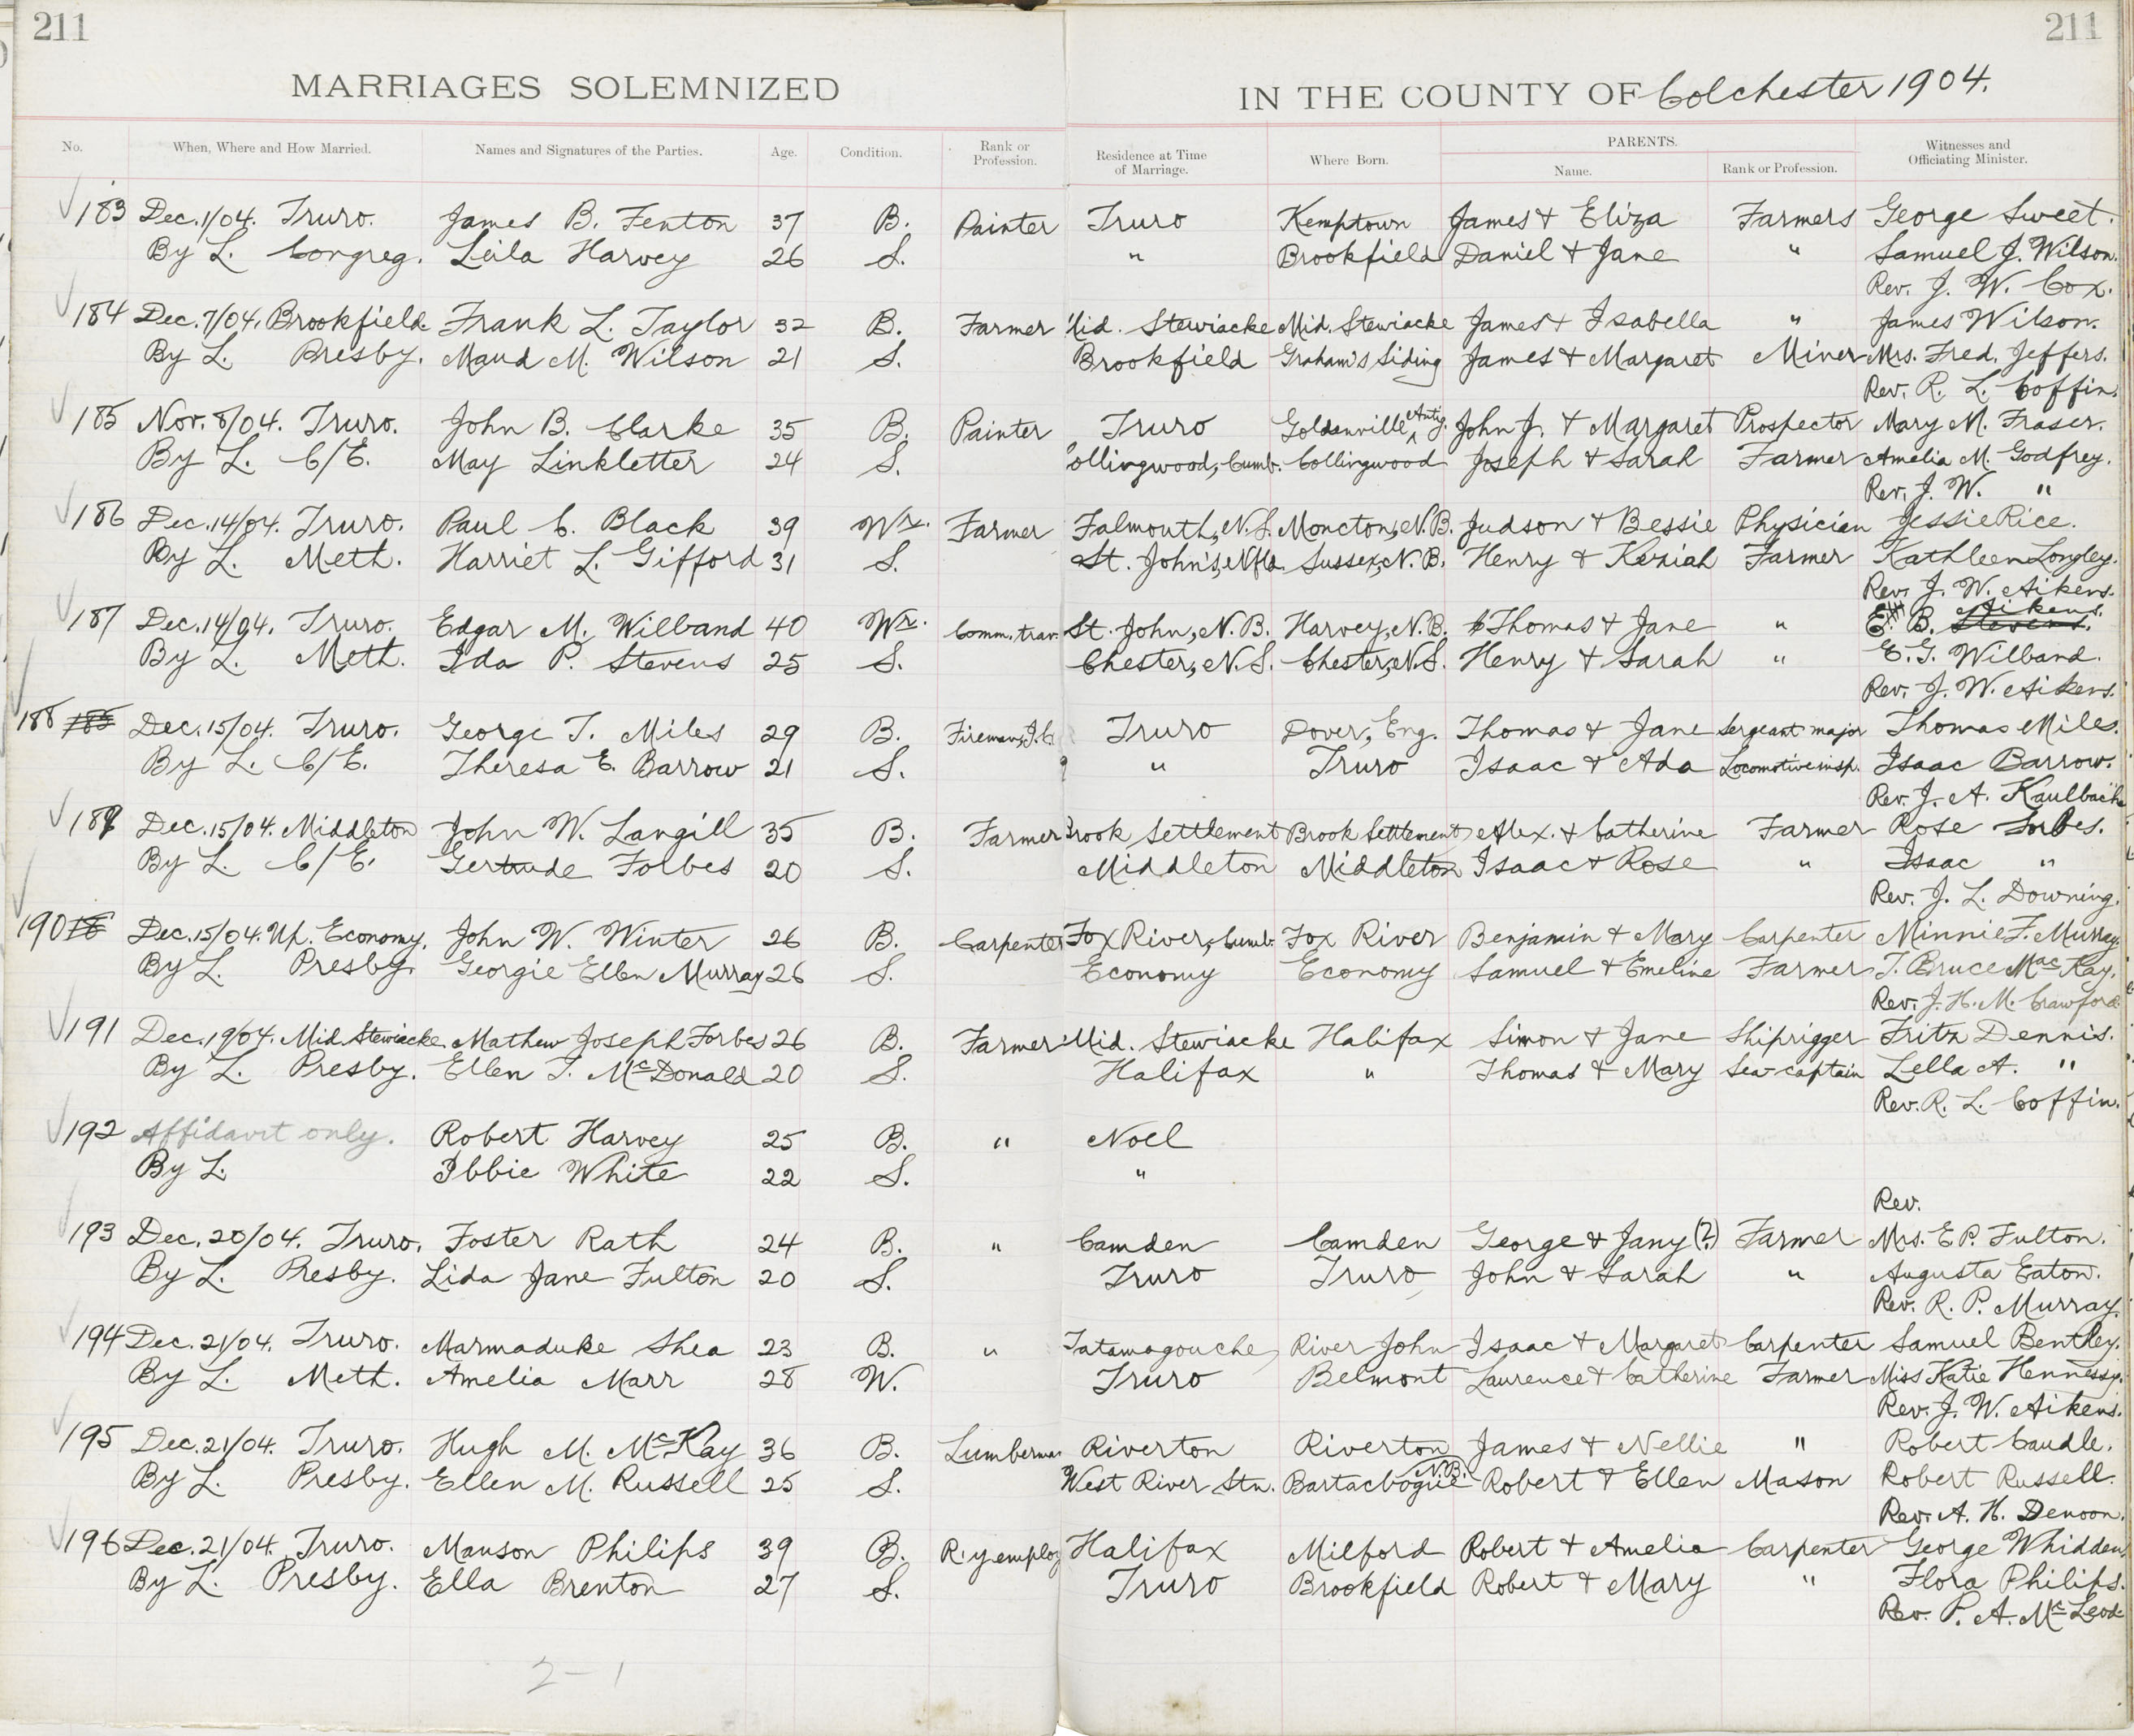 211
211
MARRIAGES SOLEMNIZED IN THE COUNTY OF Colchester 1904.
No. When, Where and How Married. Names and Signatures of the Parties. Age. Condition. Rank or Profession. Residence at Time of Marriage. Where Born. PARENTS. Name. Rank or Profession. Witnesses and Officiating Minister.
183 Dec. 1/04. Truro. James B. Fenton 37 B. Painter Truro Kemptown James & Eliza Farmers George Sweet.
By L. Congreg. Leila Harvey 26 S. " Brookfield Daniel & Jane " Samuel J. Wilson.
Rev. J. W. Cox.
184 Dec. 7/04. Brookfield. Frank L. Taylor 32 B. Farmer Mid. Stewiacke Mid. Stewiacke James & Isabella " James Wilson.
By L. Presby. Maud M. Wilson 21 S. Brookfield Graham's Siding James & Margaret Miner Mrs. Fred. Jeffers.
Rev. R. L. Coffin.
185 Nov. 8/04. Truro. John B. Clarke 35 B. Painter Truro Goldenville Antig. John J. & Margaret Prospector Mary M. Fraser.
By L. C/E. May Linkletter 24 S. Collingwood, Cumb. Collingwood Joseph & Sarah Farmer Amelia M. Godfrey.
Rev. J. W. "
186 Dec. 14/04. Truro. Paul C. Black 39 Wr. Farmer Falmouth, N.S. Moncton, N.B. Judson & Bessie Physician Jessie Rice.
By L. Meth. Harriet L. Gifford 31 S. St. John's, Nfld. Sussex, N.B. Henry & Keziah Farmer Kathleen Longley.
Rev. J. W. Aikens.
187 Dec. 14/04. Truro. Edgar M. Wilband 40 Wr. Comm. trav. St. John, N.B. Harvey, N.B. Thomas & Jane " E. B. Stevens. Aikens.
By L. Meth. Ida P. Stevens 25 S. Chester, N.S. Chester, N.S. Henry & Sarah " E. G. Wilband.
Rev. J. W. Aikens.
188 185 Dec. 15/04. Truro. George T. Miles 29 B. Fireman, I.C. Truro Dover, Eng. Thomas & Jane Sergeant major Thomas Miles.
By L. C/E. Theresa E. Barrow 21 S. " Truro Isaac & Ada Locomotive insp. Isaac Barrow.
Rev. J. A. Kaulbach.
189 Dec. 15/04. Middleton John W. Langill 35 B. Farmer Brook Settlement Brook Settlement Alex. & Catherine Farmer Rose Forbes.
By L. C/E. Gertrude Folbes 20 S. Middleton Middleton Isaac & Rose " Isaac "
Rev. J. L. Downing.
190 18 Dec. 15/04. Up. Economy. John W. Winter 26 B. Carpenter Fox River, Cumb. Fox River Benjamin & Mary Carpenter Minnie F. Murray.
By L. Presby. Georgie Ellen Murray 26 S. Economy Economy Samuel & Emeline Farmer T. Bruce MacKay.
Rev. J. H. M. Crawford.
191 Dec. 19/04. Mid. Stewiacke. Mathew Joseph Forbes 26 B. Farmer Mid. Stewiacke Halifax Simon & Jane Shiprigger Fritz Dennis.
By L. Presby. Ellen T. McDonald 20 S. Halifax " Thomas & Mary Sea-captain Lella A. "
Rev. R. L. Coffin.
192 Affidavit only. Robert Harvey 25 B. " Noel
By L. Ibbie White 22 S. "
Rev.
193 Dec. 20/04. Truro. Foster Rath 24 B. " Camden Camden George & Jany (?) Farmer Mrs. E. P. Fulton.
By L. Presby. Lida Jane Fulton 20 S. Truro Truro John & Sarah " Augusta Eaton.
Rev. R. P. Murray.
194 Dec. 21/04. Truro. Marmaduke Shea 23 B. " Tatamagouche River John Isaac & Margaret Carpenter Samuel Bentley.
By L. Meth. Amelia Marr 28 W. Truro Belmont Laurence & Catherine Farmer Miss Katie Hennessy.
Rev. J. W. Aikens.
195 Dec. 21/04. Truro. Hugh M. McKay 36 B. Lumberman Riverton Riverton James & Nellie " Robert Caudle.
By L. Presby. Ellen M. Russell 25 S. West River Stn. Bartacbogue N.B. Robert & Ellen Mason Robert Russell.
Rev. A. H. Denoon.
196 Dec. 21/04. Truro. Manson Philips 39 B. R'y employ Halifax Milford Robert & Amelia Carpenter George Whidden.
By L. Presby. Ella Brenton 27 S. Truro Brookfield Robert & Mary " Flora Philips.
Rev. P. A. McLeod.
2-1